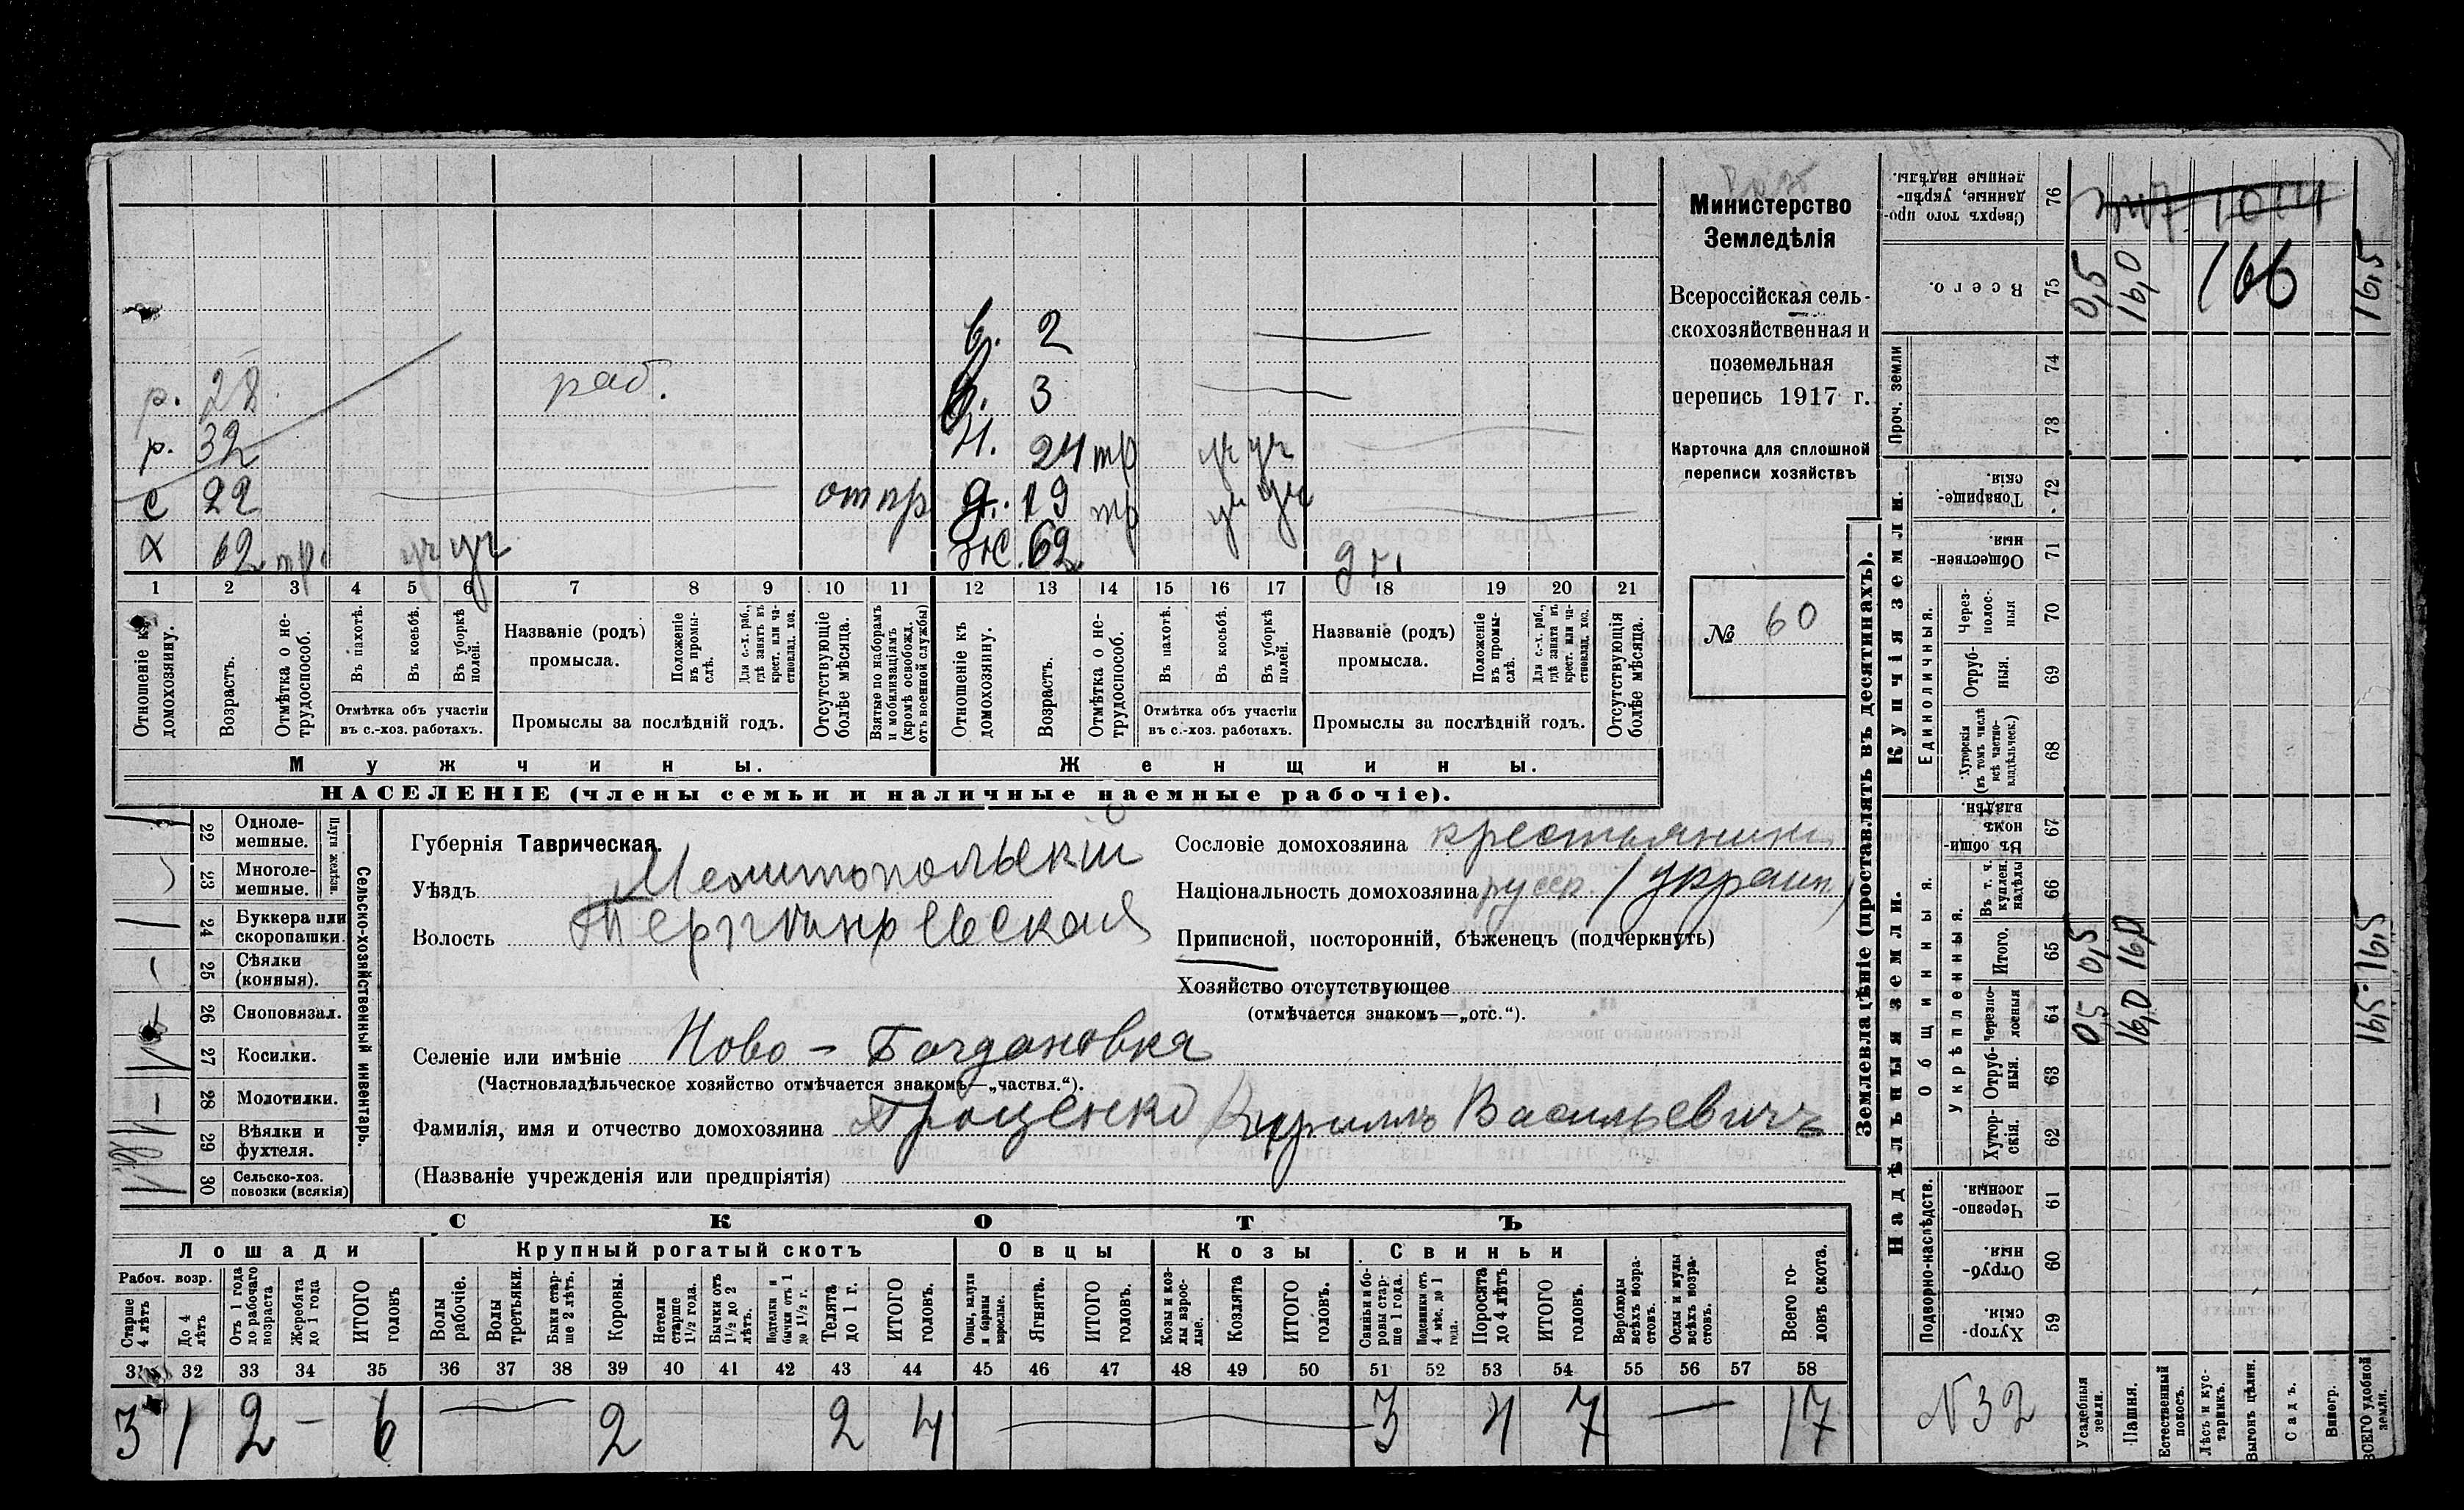 Министерство
Земледѣлія
Всероссійская сель-
скохозяйственная и
поземельная
перепись 1917 г.
Карточка для сплошной
переписи хозяйствъ
№ 60
в. 2
р. 28 раб. 3
р. 32 н. 24 тр уч уч
с 22 отпр д. 19 тр уч уч
х 62 тр. уч уч ж. 62
1 2 3 4 5 6 7 8 9 10 11 12 13 14 15 16 17 18 19 20 21
Отношеніе къ домохозяину.
Возрастъ.
Отмѣтка о не-трудоспособ.
Въ пахотѣ.
Въ косьбѣ.
Въ уборкѣ полей.
Отмѣтка объ участіи въ с.-хоз. работахъ.
Названіе (родъ) промысла.
Положеніе въ промы-слѣ.
Для с.-х. раб., гдѣ занятъ въ крест. или ча-стновлад. хоз.
Промыслы за послѣдній годъ.
Отсутствующіе болѣе мѣсяца.
Взятые по наборамъ и мобилизаціямъ (кромѣ освобожд. отъ военной службы)
Отношеніе къ домохозяину.
Возрастъ.
Отмѣтка о не-трудоспособ.
Въ пахотѣ.
Въ косьбѣ.
Въ уборкѣ полей.
Отмѣтка объ участіи въ с.-хоз. работахъ.
Названіе (родъ) промысла.
Положеніе въ промы-слѣ.
Для с.-х. раб., гдѣ занята въ крест. или ча-стновлад. хоз.
Промыслы за послѣдній годъ.
Отсутствующія болѣе мѣсяца.
Мужчины. Женщины.
НАСЕЛЕНІЕ (члены семьи и наличные наемные рабочіе).
Сельско-хозяйственный инвентарь.
Плуги желѣзн.
22 Одноле-мешные. 1
23 Многоле-мешные.
24 Буккера или скоропашки. 1
25 Сѣялки (конныя). -
26 Сноповязал. -
27 Косилки. 1
28 Молотилки. -
29 Вѣялки и фухтеля. 1
30 Сельско-хоз. повозки (всякія)
Губернія Таврическая.
Уѣздъ Мелитопольскій
Волость Терпѣньевская
Селеніе или имѣніе Ново-Богдановка
(Частновладѣльческое хозяйство отмѣчается знакомъ—„частвл.“).
Фамилія, имя и отчество домохозяина Проценко Кириллъ Васильевичъ
(Названіе учрежденія или предпріятія)
Сословіе домохозяина крестьянинъ
Національность домохозяина русск. (украин.)
Приписной, посторонній, бѣженецъ (подчеркнуть)
Хозяйство отсутствующее
(отмѣчается знакомъ—„отс.“).
СКОТЪ
Лошади Крупный рогатый скотъ Овцы Козы Свиньи
Рабоч. возр.
Старше 4 лѣтъ
До 4 лѣтъ
Отъ 1 года до рабочаго возраста
Жеребята до 1 года
ИТОГО головъ
Волы рабочіе.
Волы третьяки.
Быки стар-ше 2 лѣтъ.
Коровы.
Нетели старше 1½ года.
Бычки отъ 1½ до 2 лѣтъ.
Подтелки и бычки отъ 1 до 1½ г.
Телята до 1 г.
ИТОГО головъ.
Овцы, валухи и бараны взрослые.
Ягнята.
ИТОГО головъ.
Козы и коз-лы взрос-лые.
Козлята
ИТОГО головъ.
Свиньи и бо-ровы стар-ше 1 года.
Подсвинки отъ 4 мѣс. до 1 года.
Поросята до 4 лѣтъ
ИТОГО головъ.
Верблюды всѣхъ возра-стовъ.
Ослы и мулы всѣхъ возра-стовъ.
Всего го-ловъ скота.
31 32 33 34 35 36 37 38 39 40 41 42 43 44 45 46 47 48 49 50 51 52 53 54 55 56 57 58
3 1 2 - 6 2 2 4 3 4 7 17
Землевладѣніе (проставлять въ десятинахъ).
Надѣльныя земли. Купчія земли. Проч. земли
Подворно-наслѣдств.
Общинныя.
Укрѣпленныя.
Единоличныя.
59 Хутор-скія.
60 Отруб-ныя.
61 Черезпо-лосныя.
62 Хутор-скія.
63 Отруб-ныя.
64 Черезпо-лосныя 0,5 16,0 16,5
65 Итого. 0,5 16,0 16,5
66 Въ т. ч. куплен. надѣлы
67 Въ общи-номъ владѣн.
68 Хуторскія (въ томъ числѣ всѣ частно-владѣльческ.)
69 Отруб-ныя.
70 Через-полос-ныя
71 Обществен-ныя.
72 Товарище-скія.
73
74
75 Всего. 0,5 16,0 166 16,5
76 Сверхъ того про-данные, укрѣп-ленные надѣлы.
N 32
Усадебныя земли.
Пашня.
Естественный покосъ.
Лѣсъ и кус-тарникъ.
Выгонъ цѣлин.
Садъ.
Виногр.
ВСЕГО удобной земли.